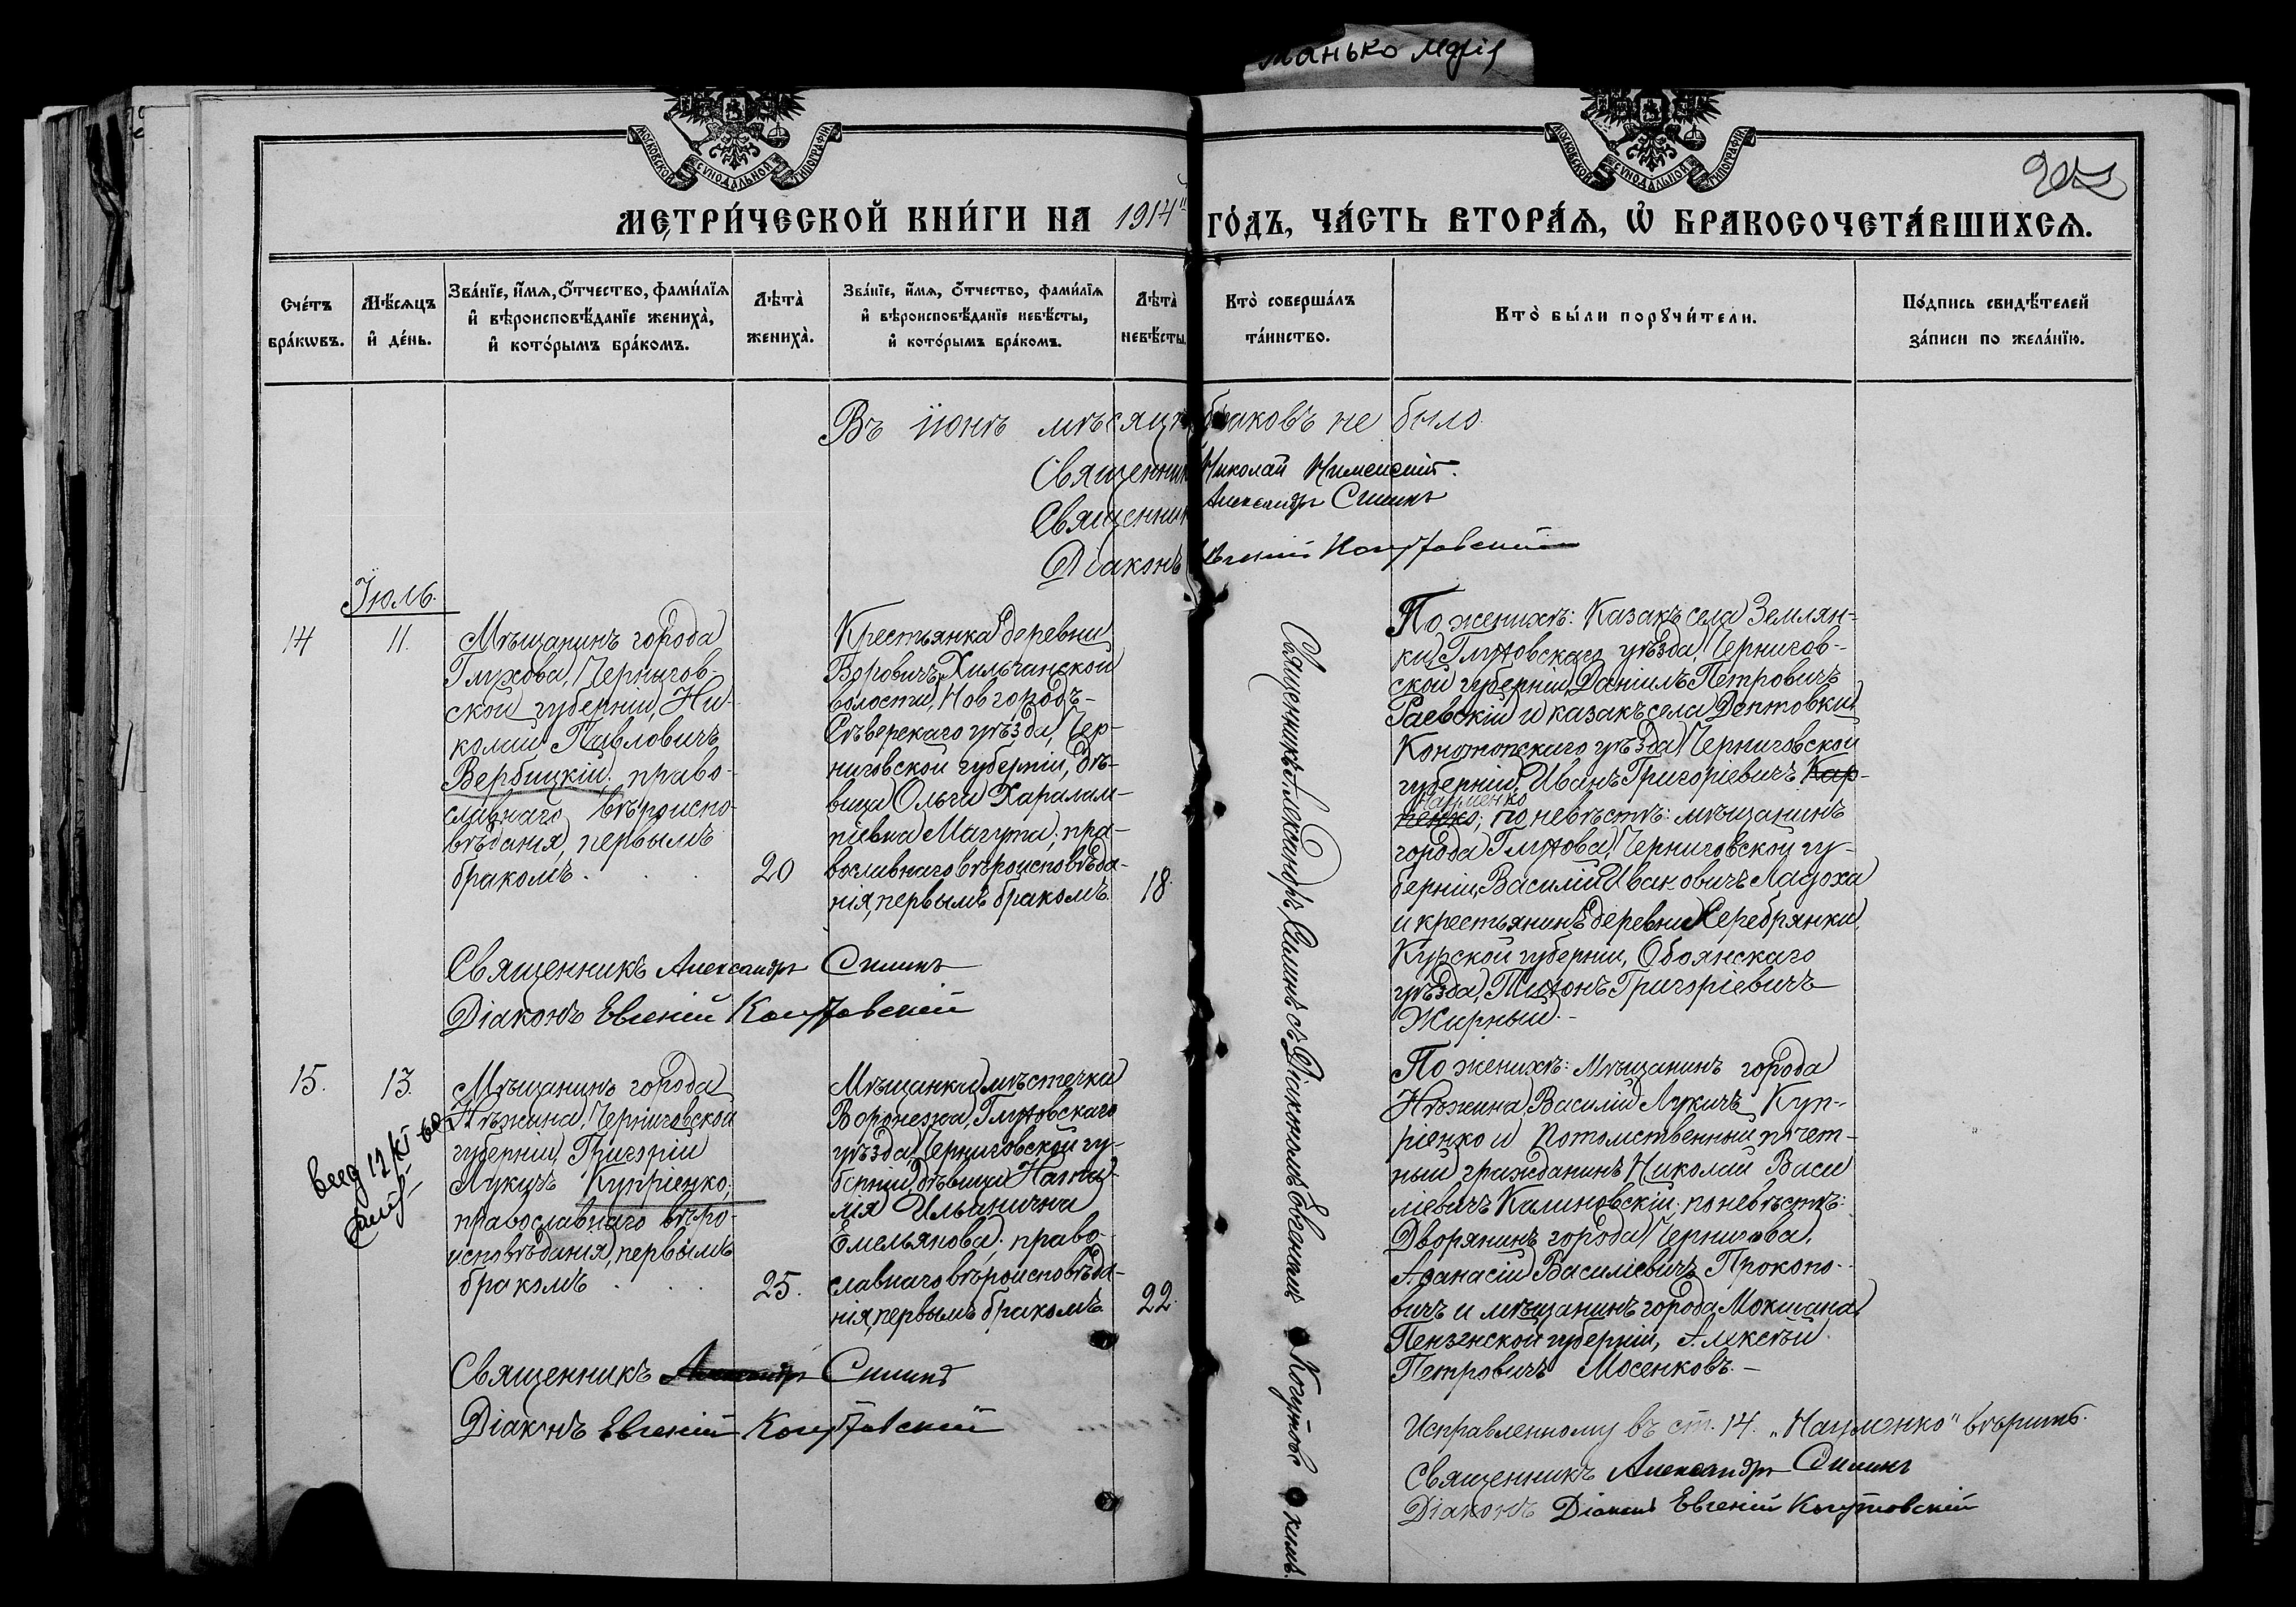 МЕТРИ́ЧЕСКОЙ КНИ́ГИ НА 1914й ГО́ДЪ, ЧА́СТЬ ВТОРА́Я, Ѡ҆ БРАКОСОЧЕТА́ВШИХСЯ.
МОСКОВСКОЙ СѴНОДАЛЬНОЙ ТИПОГРАФІИ
МОСКОВСКОЙ СѴНОДАЛЬНОЙ ТИПОГРАФІИ
Сче́тъ бра́кѡвъ.
Мѣ́сяцъ и҆ де́нь.
Зва́нїе, и҆́мя, ѻ҆́тчество, фами́лїя
и҆ вѣроисповѣ́данїе жениха̀,
и҆ кото́рымъ бра́комъ.
Лѣ́та̀ жениха̀.
Зва́нїе, и҆́мя, ѻ҆́тчество, фами́лїя
и҆ вѣроисповѣ́данїе невѣ́сты,
и҆ кото́рымъ бра́комъ.
Лѣ́та̀ невѣ́сты
Кто̀ соверша́лъ та́инство.
Кто̀ бы́ли порꙋчи́тели.
По́дпись свидѣ́телей
за́писи по жела́нїю.
Въ іюнѣ мѣсяцѣ браковъ не было
Священникъ Николай
Священникъ Александръ Симинъ
Діаконъ Евгеній Когутовскій
Іюль.
14
11.
Мѣщанинъ города
Глухова, Чернигов-
ской губерніи, Ни-
колай Павловичъ
Вербицкій, право-
славнаго вѣроиспо-
вѣданія, первымъ
бракомъ . . .
20
Крестьянка деревни
Воровичъ, Хильчанской
волости, Новгородъ-
Сѣверскаго уѣзда, Чер-
ниговской губерніи, дѣ-
вица Ольга Харалам-
піевна Магута, пра-
вославнаго вѣроисповѣда-
нія, первымъ бракомъ.
18.
Священникъ Александръ Симинъ съ Діакономъ Евгеніемъ Когутовскимъ.
По женихѣ: Казакъ села Землян-
ки, Глуховскаго уѣзда, Чернигов-
ской губерніи, Даніилъ Петровичъ
Раевскій и казакъ села Дептовки,
Конотопскаго уѣзда, Черниговской
губерніи, Иванъ Григоріевичъ Кар-
Науменко
пенко; по невѣстѣ: мѣщанинъ
города Глухова, Черниговской гу-
берніи, Василій Ивановичъ Ладоха
и крестьянинъ деревни Серебрянки,
Курской губерніи, Обоянскаго
уѣзда, Тихонъ Григоріевичъ
Жирный. -
Священникъ Александръ Симинъ
Діаконъ Евгеній Когутовскій
15.
13.
Мѣщанинъ города
Нѣжина, Черниговской
губерніи, Григорій
Лукичъ Купріенко,
православнаго вѣро-
исповѣданія, первымъ
бракомъ . . .
25.
Мѣщанка мѣстечка
Воронежа, Глуховскаго
уѣзда, Черниговской гу-
берніи, дѣвица Ната-
лія Ильинична
Емельянова, право-
славнаго вѣроисповѣда-
нія, первымъ бракомъ.
22.
По женихѣ: Мѣщанинъ города
Нѣжина, Василій Лукичъ Куп-
ріенко и Потомственный почет-
ный гражданинъ, Николай Васи
ліевичъ Калиновскій; по невѣстѣ:
Дворянинъ города Чернигова,
Афанасій Василіевичъ Прокопо-
вичъ и мѣщанинъ города Мокшана
Пензенской губерніи, Алексѣй
Петровичъ Мосенковъ. -
Священникъ Александръ Симинъ
Діаконъ Евгеній Когутовскій
Исправленному въ ст. 14. „Науменко" вѣрить.
Священникъ Александръ Симинъ
Діаконъ Діаконъ Евгеній Когутовскій